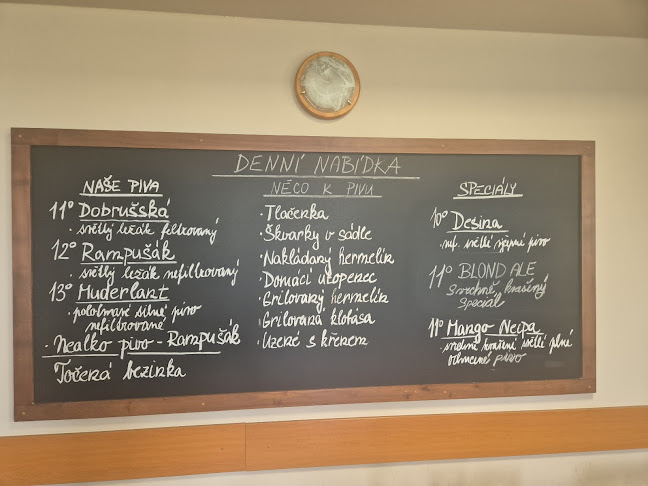 DENNÍ NABÍDKA
NAŠE PIVA
11° Dobrušská
· světlý ležák filtrovaný
12° Rampušák
· světlý ležák nefiltrovaný
13° Huderlant
· polotmavé silné pivo
nefiltrované
· Nealko pivo - Rampušák
Točená bezinka
NĚCO K PIVU
· Tlačenka
· Škvarky v sádle
· Nakládaný hermelín
· Domácí utopenec
· Grilovaný hermelín
· Grilovaná klobása
· Uzené s křenem
SPECIÁLY
10° Desina
· nef. světlé výčepní pivo
11° BLOND ALE
Svrchně kvašený
Speciál
11° Mango Neipa
· svrchně kvašené světlé plné
ochucené pivo